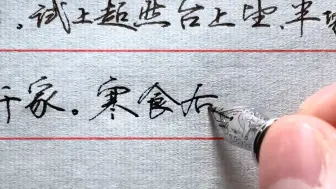 。试上超然台上望,半
千家。寒食后